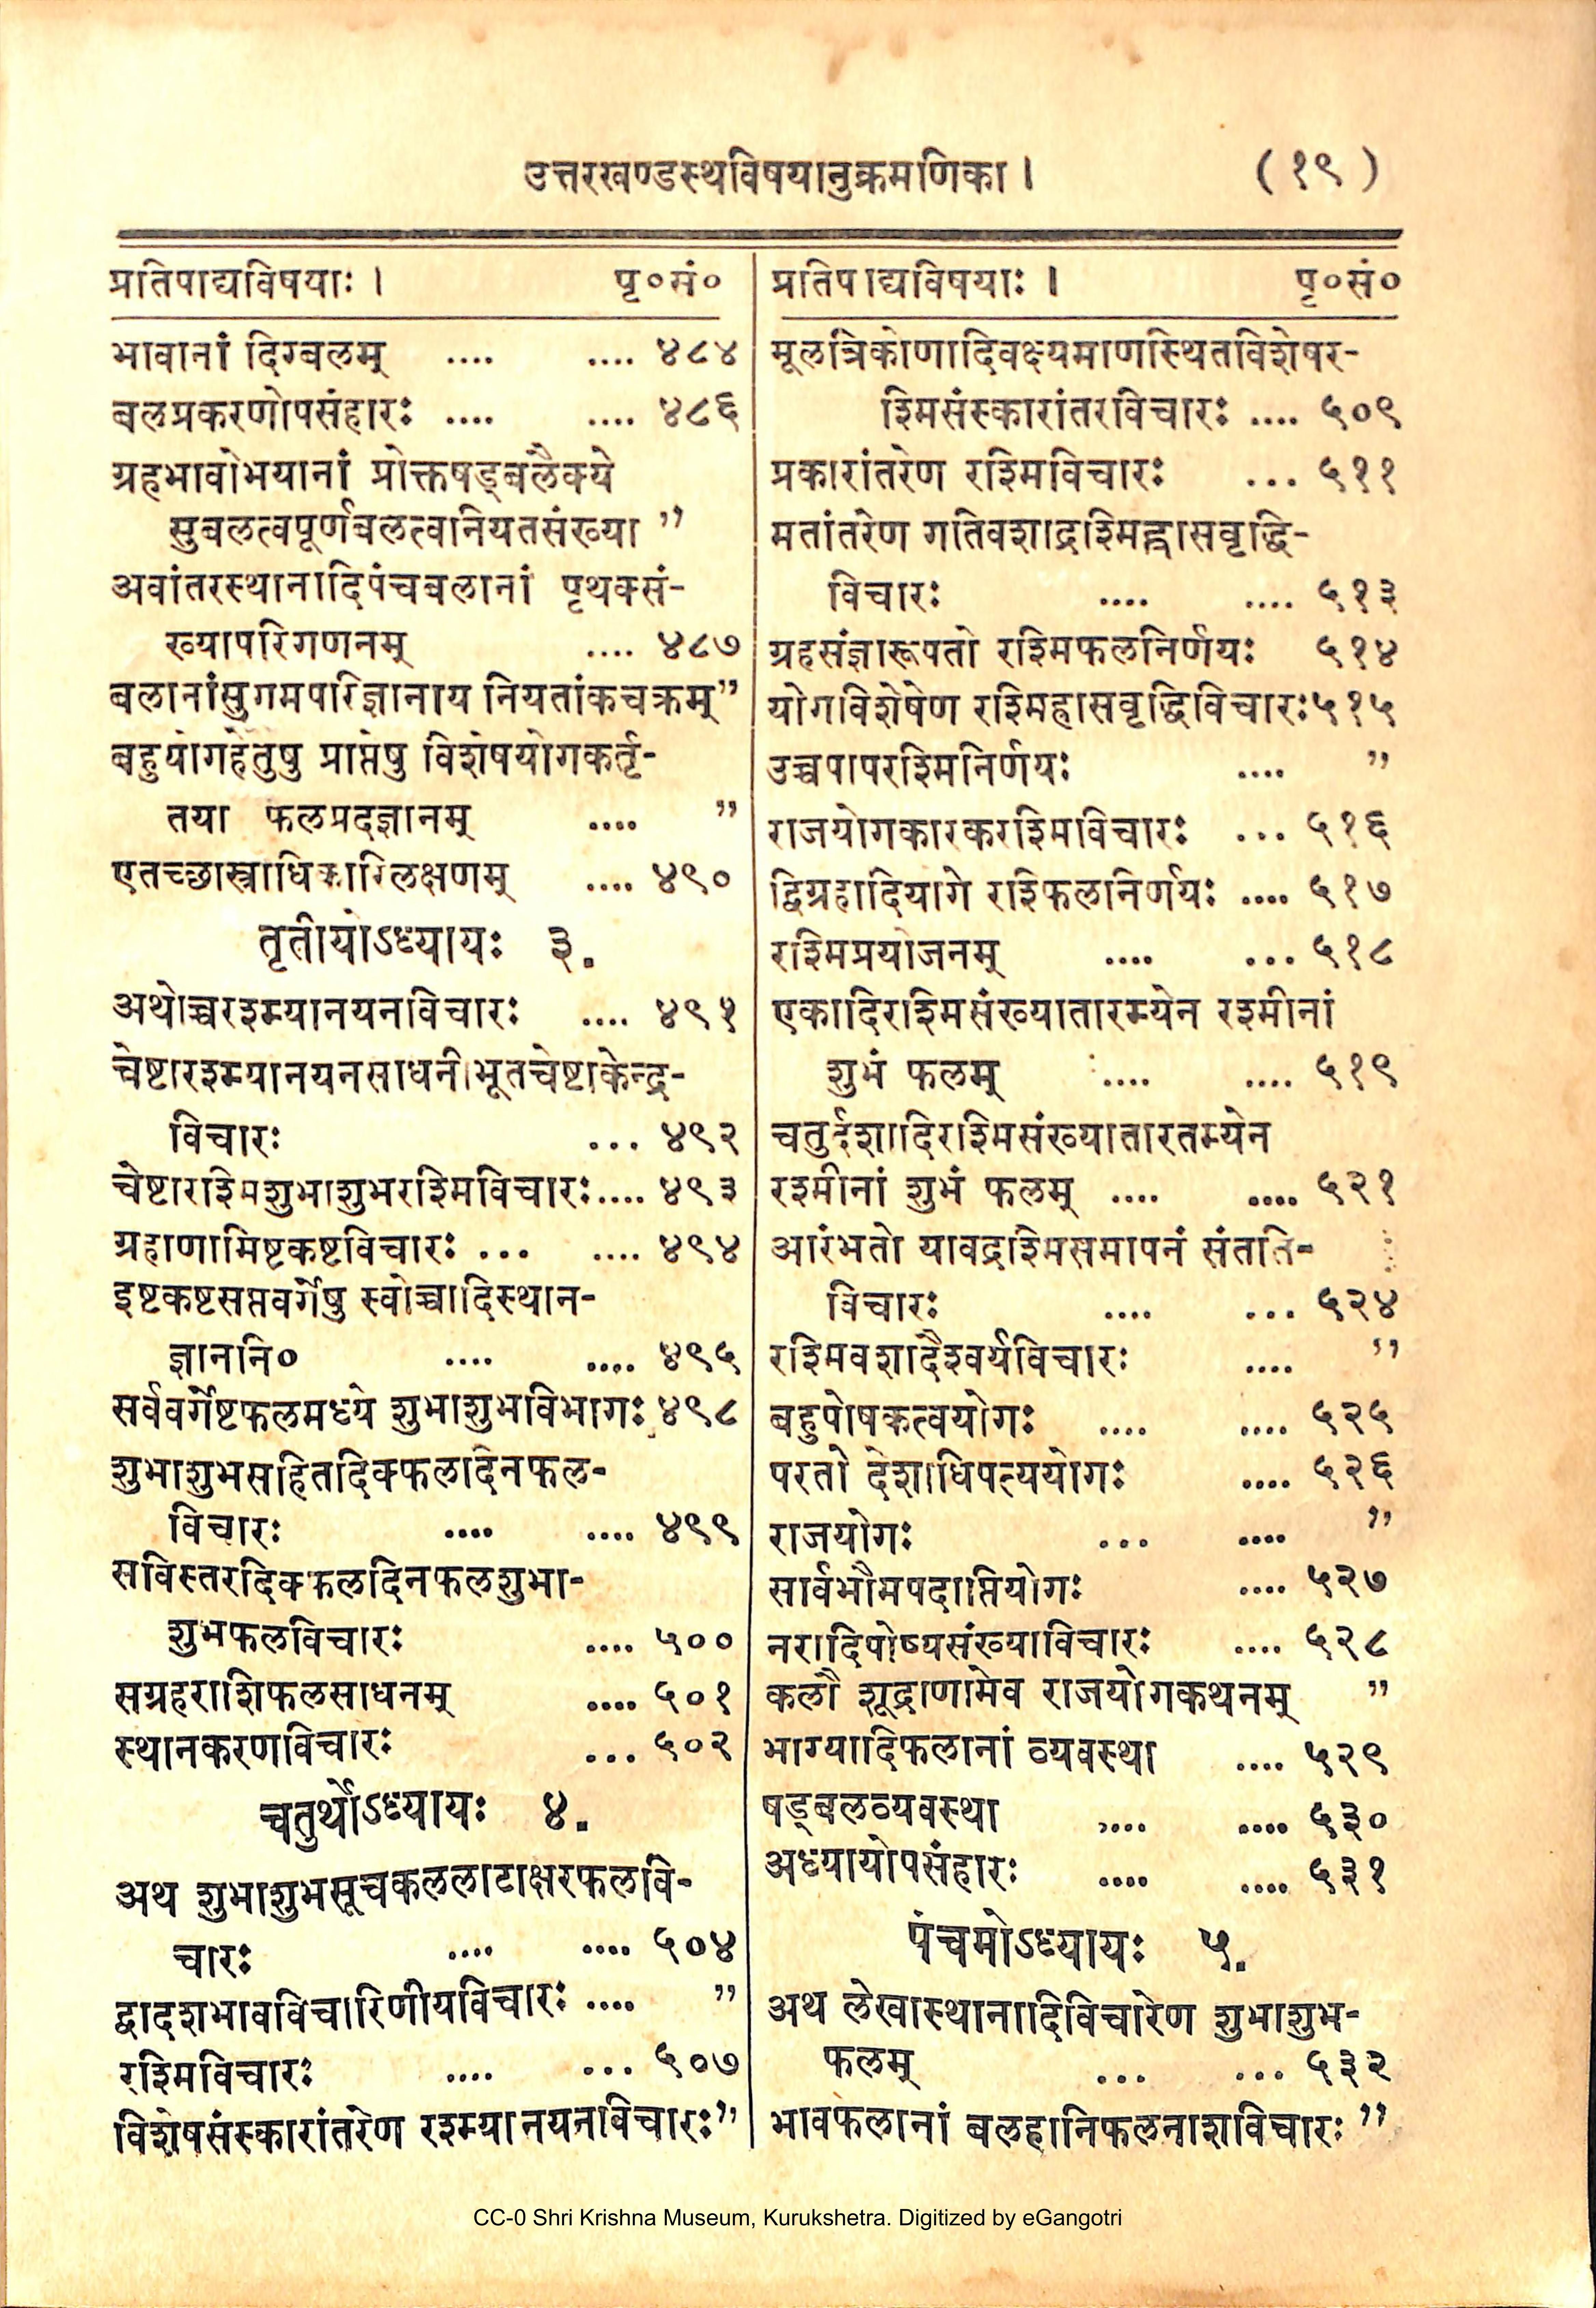 उत्तरखण्डस्थविषयानुक्रमणिका । (१९)
प्रतिपाद्यविषयाः । पृ०सं०
भावानां दिग्बलम् .... .... ४८४
बलप्रकरणोपसंहारः .... .... ४८६
ग्रहभावोभयानां प्रोक्तषड्बलैक्ये
सुबलत्वपूर्णबलत्वनियतसंख्या ”
अवांतरस्थानादिपंचबलानां पृथक्सं-
ख्यापरिगणनम् .... ४८७
बलानांसुगमपरिज्ञानाय नियतांकचक्रम् ”
बहुयोगहेतुषु प्राप्तेषु विशेषयोगकर्तृ-
तया फलप्रदज्ञानम् .... ”
एतच्छास्त्राधिकारिलक्षणम् .... ४९०
तृतीयोऽध्यायः ३.
अथोच्चरश्म्यानयनविचारः .... ४९१
चेष्टारश्म्यानयनसाधनीभूतचेष्टाकेन्द्र-
विचारः ... ४९२
चेष्टारश्मिशुभाशुभरश्मिविचारः.... ४९३
ग्रहाणामिष्टकष्टविचारः ... .... ४९४
इष्टकष्टसप्तवर्गेषु स्वोच्चादिस्थान-
ज्ञाननि० .... .... ४९५
सर्ववर्गेष्टफलमध्ये शुभाशुभविभागः ४९८
शुभाशुभसहितदिक्फलदिनफल-
विचारः .... .... ४९९
सविस्तरदिक्फलदिनफलशुभा-
शुभफलविचारः .... ५००
सग्रहराशिफलसाधनम् .... ५०१
स्थानकरणविचारः ... ५०२
चतुर्थोऽध्यायः ४.
अथ शुभाशुभसूचकललाटाक्षरफलवि-
चारः .... .... ५०४
द्वादशभावविचारिणीयविचारः .... ”
रश्मिविचारः .... ... ५०७
विशेषसंस्कारांतरेण रश्म्यानयनविचारः ”
प्रतिपाद्यविषयाः । पृ०सं०
मूलत्रिकोणादिवक्ष्यमाणस्थितविशेषर-
श्मिसंस्कारांतरविचारः .... ५०९
प्रकारांतरेण रश्मिविचारः ... ५११
मतांतरेण गतिवशाद्रश्मिह्रासवृद्धि-
विचारः .... .... ५१३
ग्रहसंज्ञारूपतो रश्मिफलनिर्णयः ५१४
योगविशेषेण रश्मिह्रासवृद्धिविचारः५१५
उच्चपापरश्मिनिर्णयः .... ”
राजयोगकारकरश्मिविचारः ... ५१६
द्विग्रहादियागे राश्फिलनिर्णयः .... ५१७
रश्मिप्रयोजनम् .... ... ५१८
एकादिरश्मिसंख्यातारम्येन रश्मीनां
शुभं फलम् .... .... ५१९
चतुर्दशादिरश्मिसंख्यातारतम्येन
रश्मीनां शुभं फलम् .... .... ५२१
आरंभतो यावद्रश्मिसमापनं संतति-
विचारः .... ... ५२४
रश्मिवशादैश्वर्यविचारः .... ”
बहुपोषकत्वयोगः .... .... ५२५
परतो देशाधिपत्ययोगः .... ५२६
राजयोगः ... .... ”
सार्वभौमपदाप्तियोगः .... ५२७
नरादिपोष्यसंख्याविचारः .... ५२८
कलौ शूद्राणामेव राजयोगकथनम् ”
भाग्यादिफलानां व्यवस्था .... ५२९
षड्बलव्यवस्था .... .... ५३०
अध्यायोपसंहारः .... .... ५३१
पंचमोऽध्यायः ५.
अथ लेखास्थानादिविचारेण शुभाशुभ-
फलम् ... ... ५३२
भावफलानां बलहानिफलनाशविचारः ”
CC-0 Shri Krishna Museum, Kurukshetra. Digitized by eGangotri